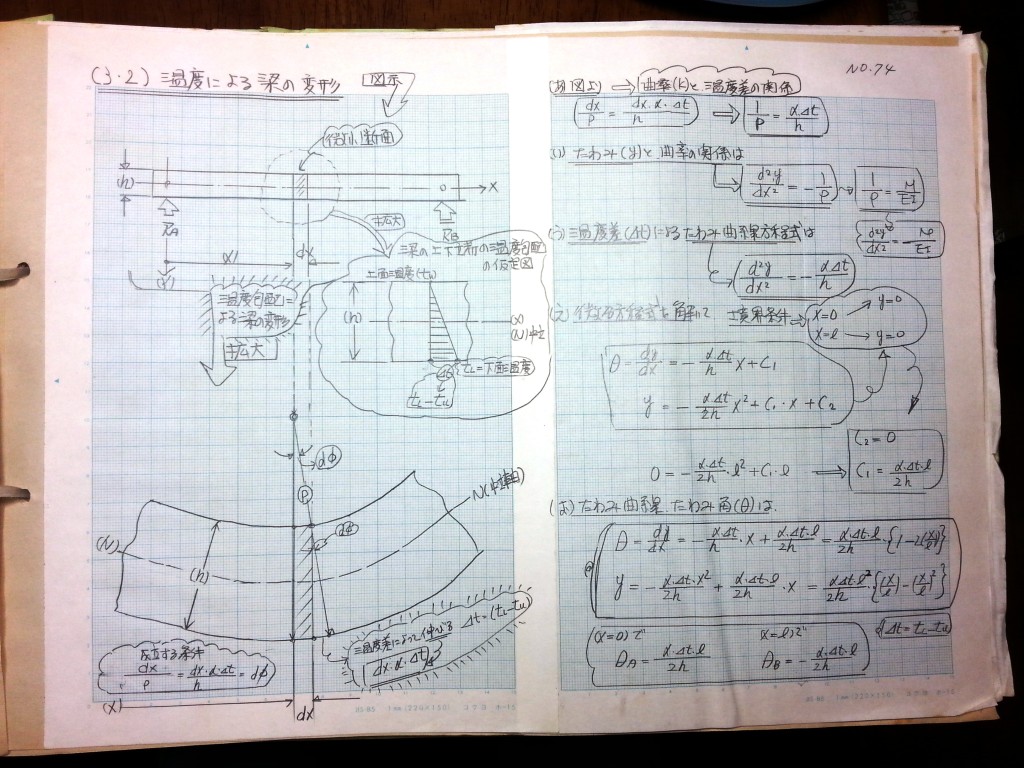 (3・2) 温度による梁の変形
図示
微小断面
(h)
X
RA
RB
dx
拡大
梁の上下面の温度勾配
の仮定図
上面温度(tu)
(h)
(N)中立
tL=下面温度
Δt
tL-tu
温度勾配に
よる梁の変形
拡大
dφ
ρ
dφ
N(中立軸)
(N)
(h)
温度差によって伸びる
dx・α・Δt
Δt=(tL-tu)
成立する条件
dx/ρ = dx・α・Δt/h = dφ
(x)
dx
NO.74
(あ) 図より ⇒ 曲率(k)と温度差の関係
dx/ρ = dx・α・Δt/h ⇒ 1/ρ = α・Δt/h
(い) たわみ(y)と曲率の関係は
d²y/dx² = -1/ρ
1/ρ = M/EI
d²y/dx² = -M/EI
(う) 温度差(Δt)によるたわみ曲線方程式は
d²y/dx² = -α・Δt/h
(え) 微分方程式を解いて
境界条件 ⇒ x=0 → y=0
x=l → y=0
θ = dy/dx = -α・Δt/h x + C1
y = -α・Δt/2h x² + C1・x + C2
C2 = 0
0 = -α・Δt/2h・l² + C1・l ⇒ C1 = α・Δt・l/2h
(お) たわみ曲線、たわみ角(θ)は、
θ = dy/dx = -α・Δt/h・x + α・Δt・l/2h = α・Δt・l/2h・{1-2(x/l)}
y = -α・Δt・x²/2h + α・Δt・l/2h・x = α・Δt・l²/2h・{(x/l)-(x/l)²}
(Δt=tL-tu)
(x=0)で x=l)で
θA = α・Δt・l/2h θB = -α・Δt・l/2h